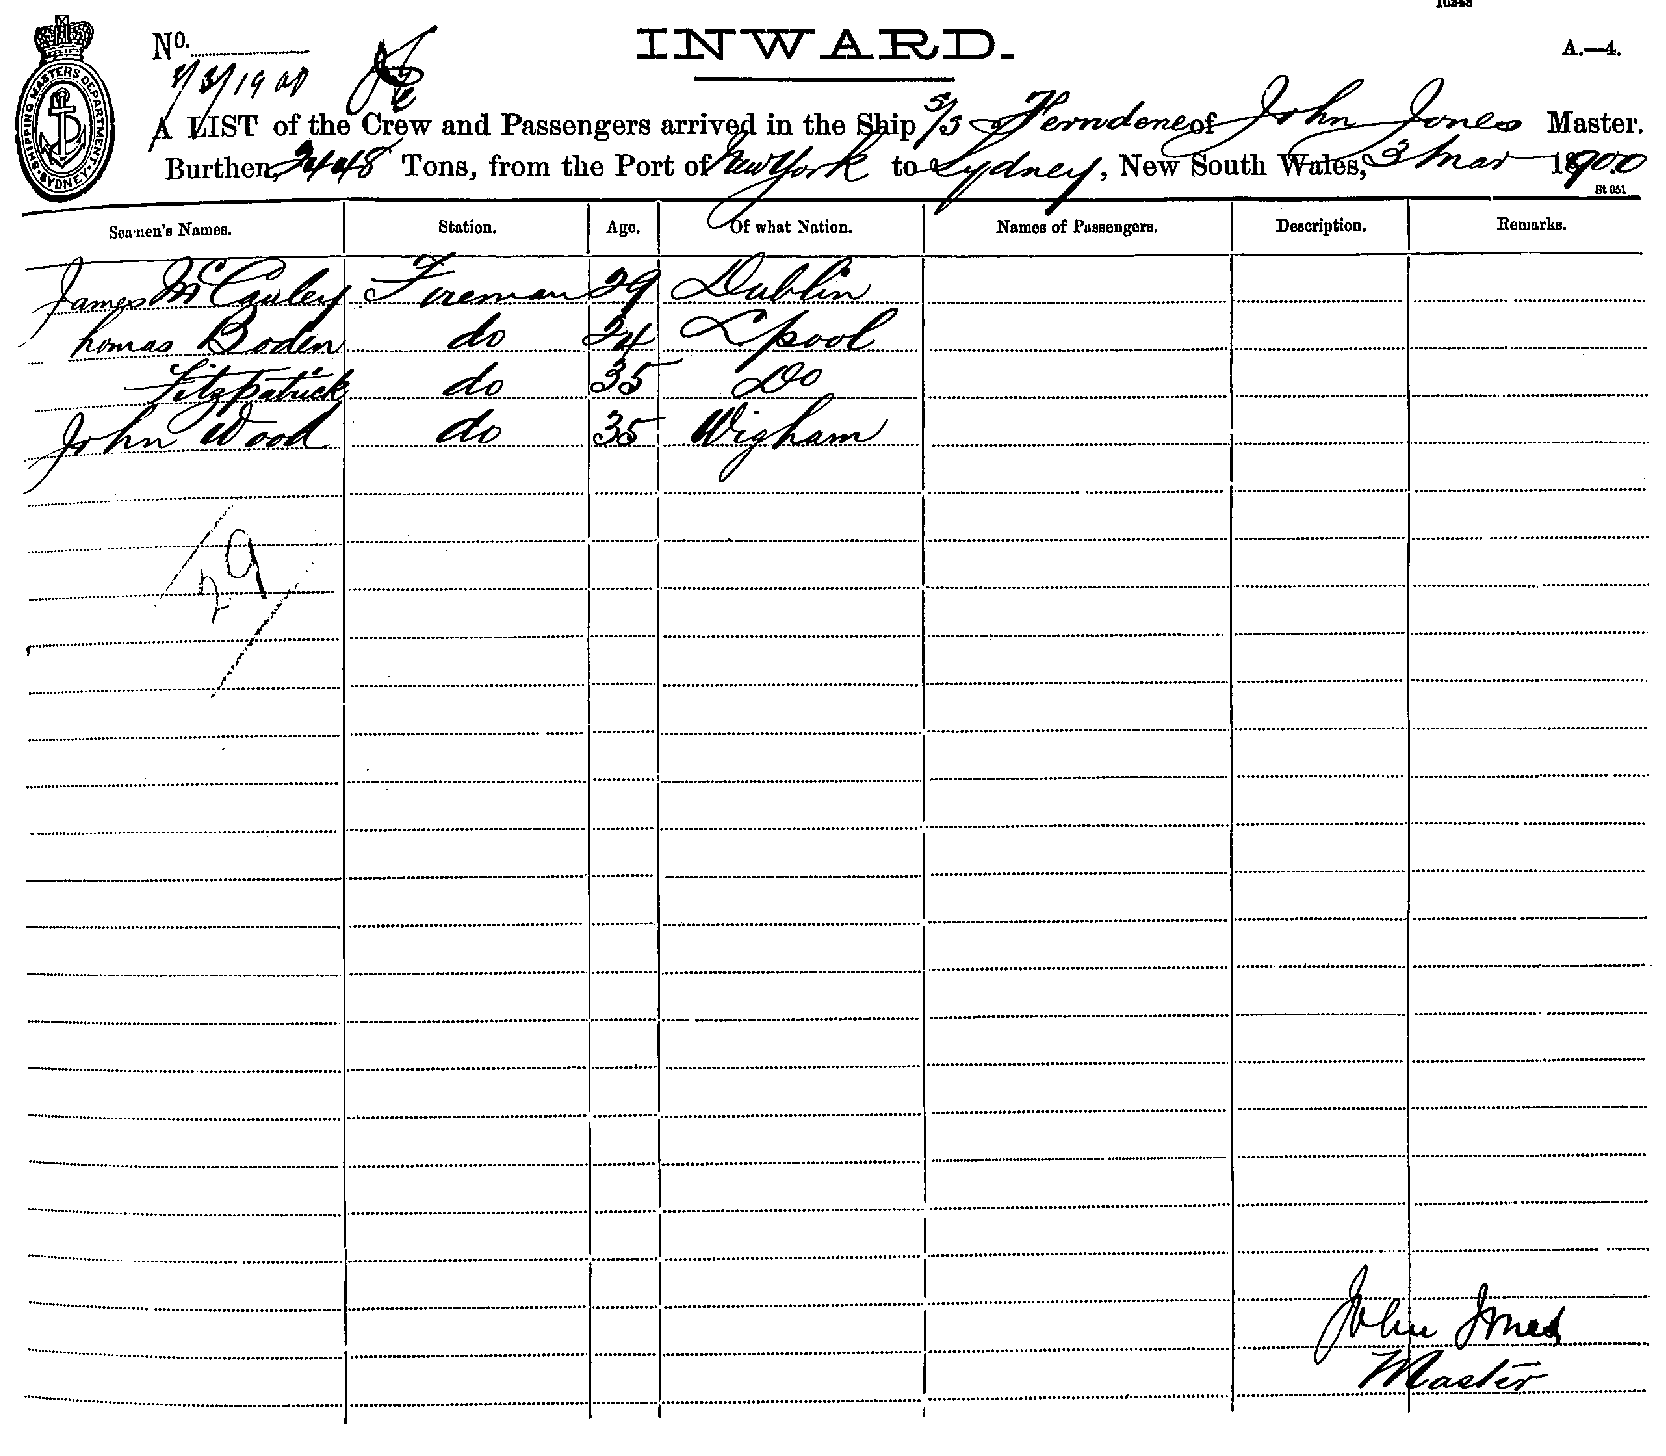 INWARD.
A.—4.
No.
SHIPPING MASTERS DEPARTMENT SYDNEY
A LIST of the Crew and Passengers arrived in the Ship S/S Ferndene of John Jones Master.
Burthen, 2448 Tons, from the Port of New York to Sydney, New South Wales, 3 Mar 1900
Seamen's Names. Station. Age. Of what Nation. Names of Passengers. Description. Remarks.
James McCauley Fireman 29 Dublin
Thomas Boden do 24 Lpool
Fitzpatrick do 35 Do
John Wood do 35 Wigham
29
John Jones
Master